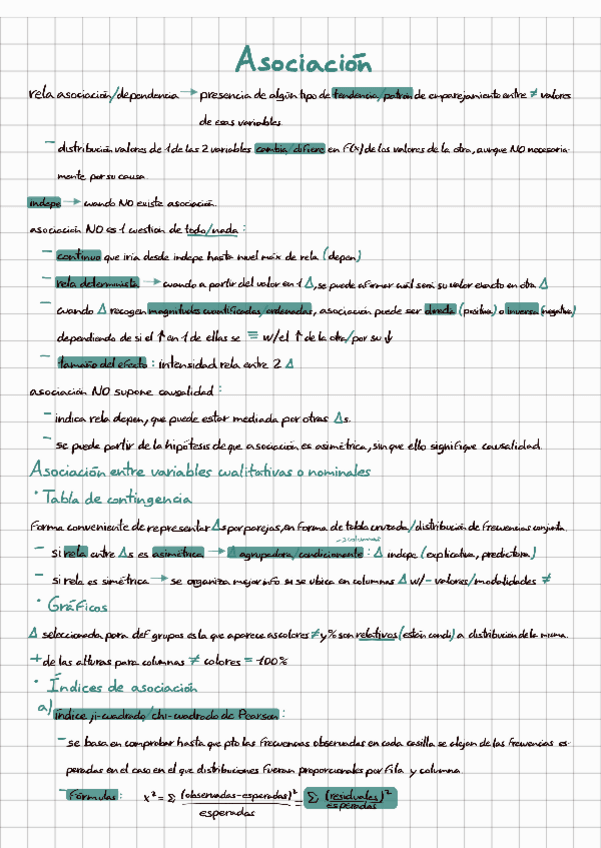 Asociación
rela asociación/dependencia → presencia de algún tipo de tendencia/patrón de emparejamiento entre ≠ valores
de esas variables
- distribución valores de 1 de las 2 variables cambia, difiere en f(x) de los valores de la otra, aunque NO necesaria-
mente por su causa.
indepe → cuando NO existe asociación.
asociación NO es 1 cuestion de todo/nada:
- continuo que iría desde indepe hasta nivel máx de rela (depen)
- rela determinista → cuando a partir del valor en 1 Δ, se puede afirmar cuál será su valor exacto en otra Δ
- cuando Δ recogen magnitudes cuantificadas/ordenadas, asociación puede ser directa (positiva) o inversa (negativa)
dependiendo de si el ↑ en 1 de ellas se = w/el ↑ de la otra/por su ↓
- tamaño del efecto: intensidad rela entre 2 Δ
asociación NO supone causalidad:
- indica rela depen, que puede estar mediada por otras Δs.
- se puede partir de la hipótesis de que asociación es asimétrica, sin que ello signifique causalidad.
Asociación entre variables cualitativas o nominales
· Tabla de contingencia
Forma conveniente de representar Δs por parejas, en forma de tabla cruzada/distribución de frecuencias conjunta.
→ columnas
- si rela entre Δs es asimétrica → Δ agrupadora/condicionante: Δ indepe (explicativa, predictora)
- si rela es simétrica → se organiza mejor info si se ubica en columnas Δ w/- valores/modalidades ≠
· Gráficos
Δ seleccionada para def grupos es la que aparece as colores ≠ y % son relativos (están condi) a distribución de la misma.
+ de las alturas para columnas ≠ colores = 100%
· Índices de asociación
a) índice ji-cuadrado/chi-cuadrado de Pearson:
- se basa en comprobar hasta que pto las frecuencias observadas en cada casilla se alejan de las frecuencias es-
peradas en el caso en el que distribuciones fueran proporcionales por fila y columna.
- Fórmulas: x² = Σ (observadas-esperadas)²/esperadas = Σ (residuales)²/esperadas